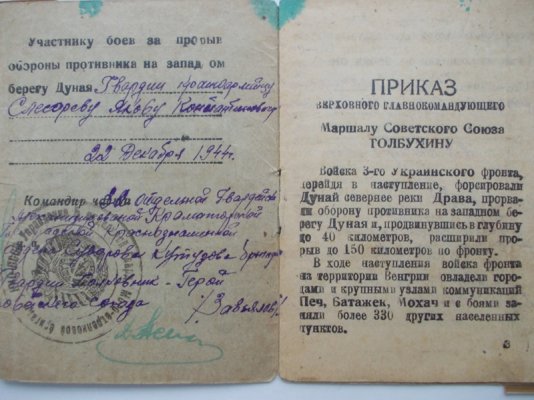 Участнику боев за прорыв
обороны противника на западном
берегу Дуная Гвардии
Слесареву Якову Константиновичу
22 Декабря 1944г.
Командир части 22 Отдельной Гвардейской
Краматорской
Краснознаменной
Суворова Кутузова бригады
Гвардии Полковник - Герой
Советского Союза /Завьялов/
ПРИКАЗ
ВЕРХОВНОГО ГЛАВНОКОМАНДУЮЩЕГО
Маршалу Советского Союза
ТОЛБУХИНУ
Войска 3-го Украинского фронта,
перейдя в наступление, форсировали
Дунай севернее реки Драва, прорва-
ли оборону противника на западном бе-
регу Дуная и, продвинувшись в глубину
до 40 километров, расширили про-
рыв до 150 километров по фронту.
В ходе наступления войска фронта
на территории Венгрии овладели горо-
дами и крупными узлами коммуникаций
Печ, Батажек, Мохач и с боями за-
няли более 330 других населенных
пунктов.
3